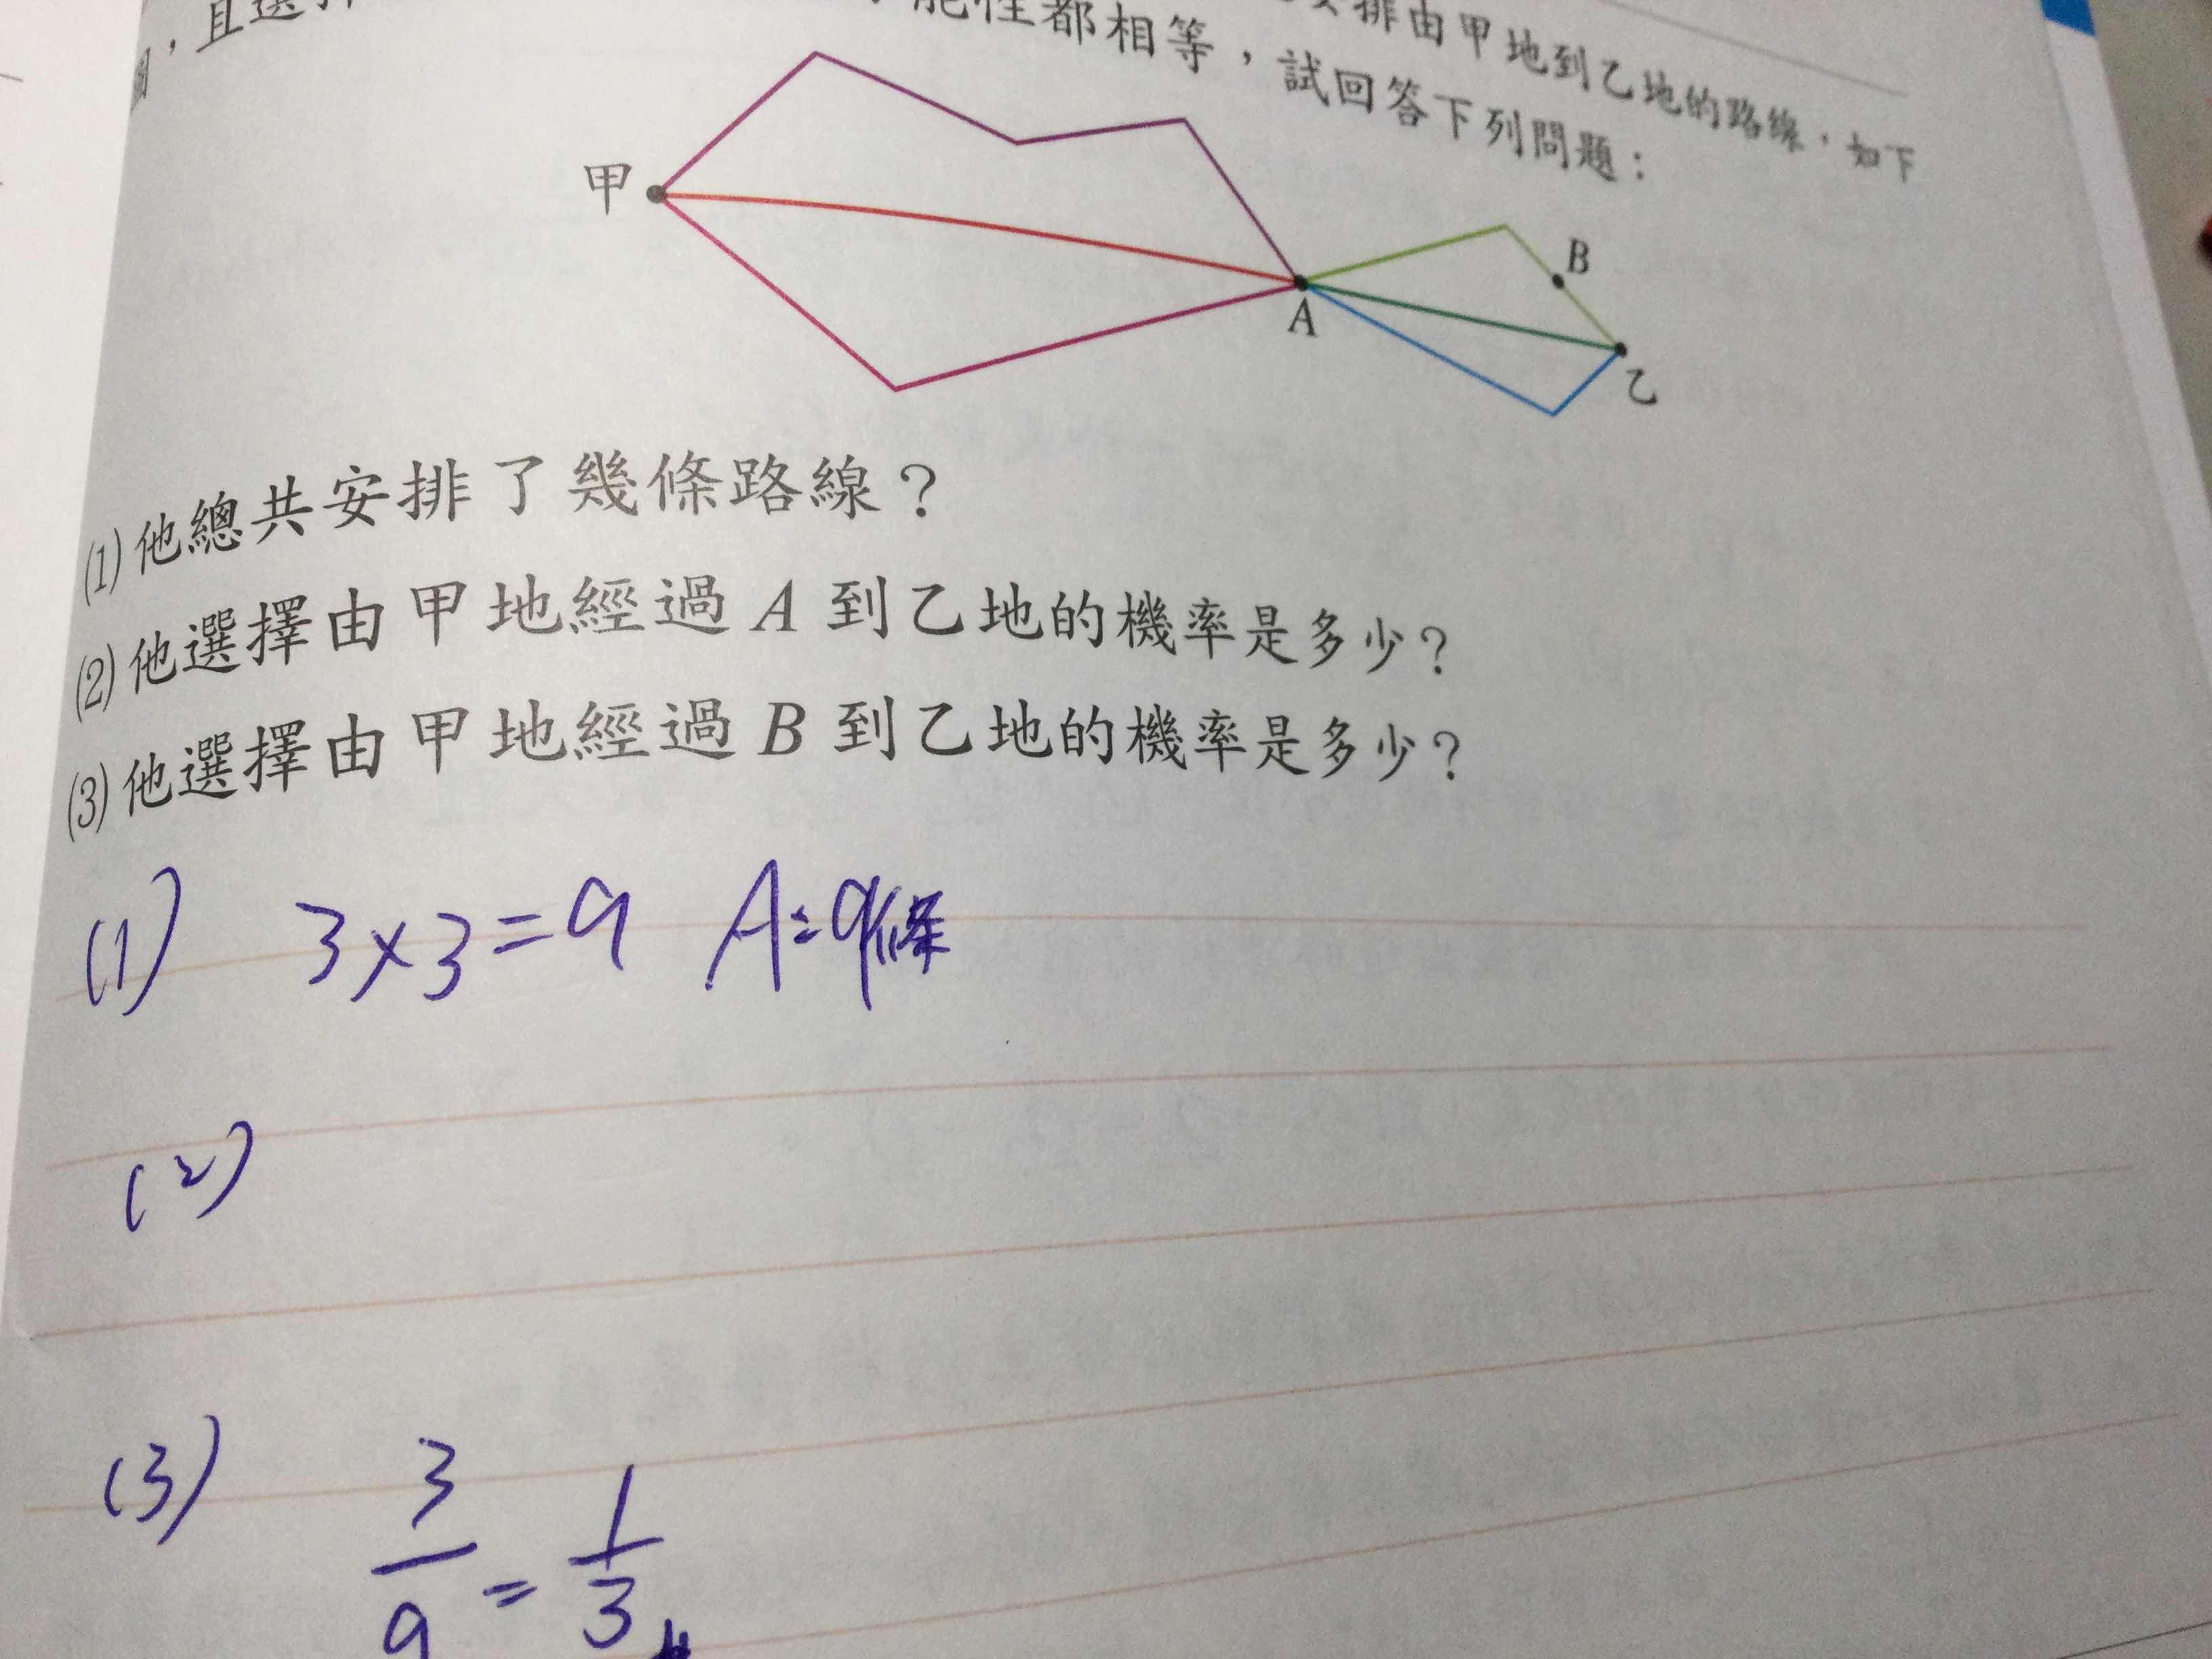 安排由甲地到乙地的路線，如下
圖，且選擇
能性都相等，試回答下列問題：
甲
B
A
乙
(1)他總共安排了幾條路線？
(2)他選擇由甲地經過A到乙地的機率是多少？
(3)他選擇由甲地經過B到乙地的機率是多少？
(1) 3×3=9 A:9條
(2)
(3) 3/9 = 1/3